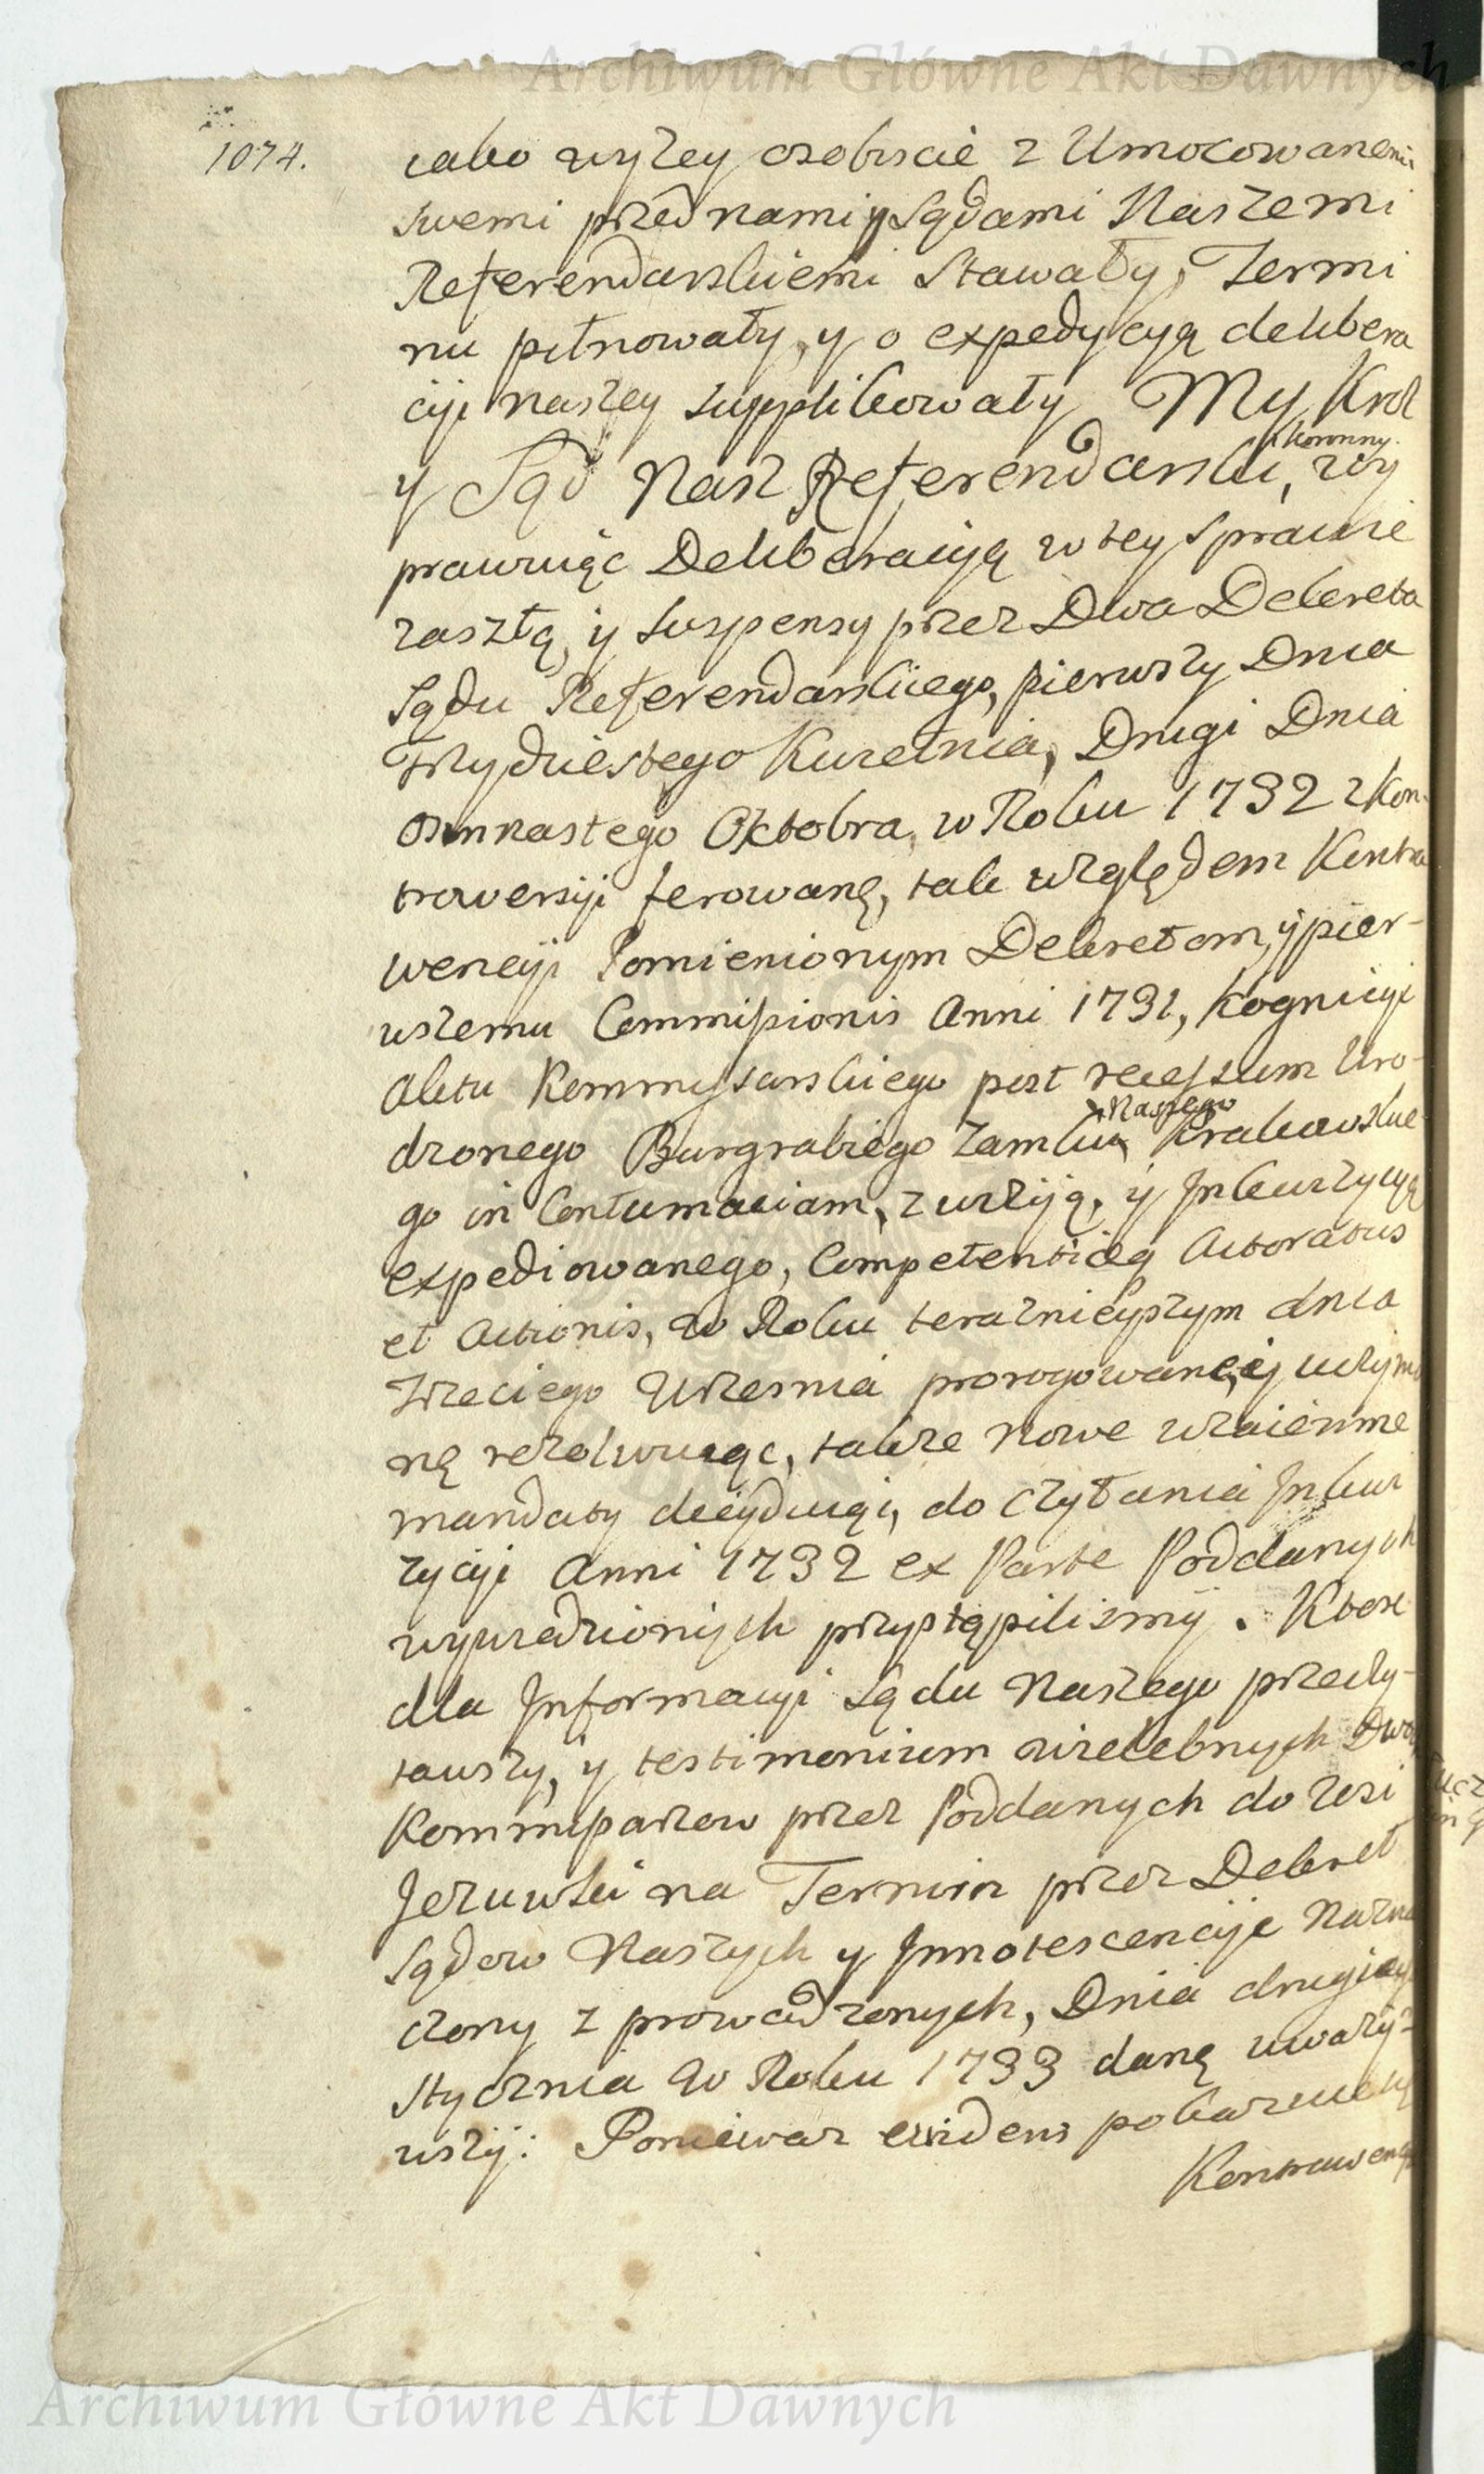 Archiwum Główne Akt Dawnych
1074.
iako wyzey osobiscie z Umocowanemi
swemi przed nami y Sądami Naszemi
Referendarskiemi Stawały, Termi
nu pilnowały, y o expedycyą delibera
cyi naszey supplikowały My Krol
y Sąd Nasz Referendarski, koronny. wy
prawuiąc Deliberacyą w tey sprawie
zaszłą, y suspensy przez Dwa Dekreta
Sądu Referendarskiego, pierwszy Dnia
trzydziestego Kwietnia, Drugi Dnia
osmnastego Oktobra, w Roku 1732 z Kon-
trowersyi ferowaną, tak względem Kontra
wencyi Pomienionym Dekretom, y pier-
wszemu Commissionis Anni 1731, Kognicyi
Aktu Kommyssarskiego post recessum Uro-
dzonego Burgrabiego Zamku Naszego Krakowskie-
go in Contumaciam, z wizyją, y Inkwizycyą
expediowanego, Competentiaą Actoratus
et Actionis, w Roku teraznieyszym dnia
Trzeciego Wrzesnia prorogowaną, y utrzyma
ną rezolwuiąc, także nowe wzaiemne
mandaty decyduiąc, do czytania Inkwi
zycyi Anni 1732 ex Parte Poddanych
wywiedzionych przystąpilismy. Ktore
dla Informacyi Sądu Naszego przeczy-
tawszy, y testimonium wielebnych Dwoch
Kommissarzow przez Poddanych do wsi
Jezuwki na Termin przez Dekret
Sądow Naszych y Innotescencyie Nazna
czony z prowadzonych, Dnia drugiego
Stycznia w Roku 1733 daną uwazy-
wszy: Poniewaz evidens pokazuie się
Kontrawency
Archiwum Główne Akt Dawnych